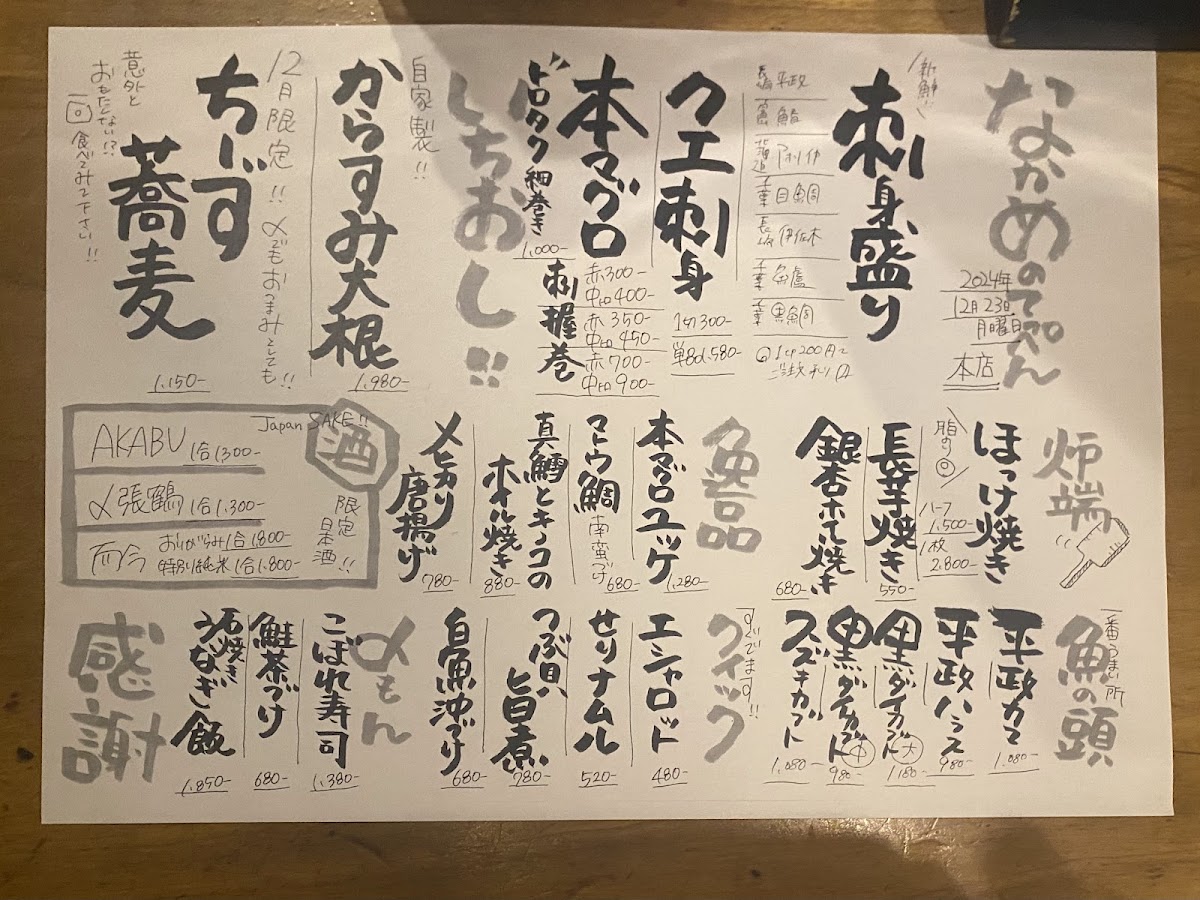 なかめのてっぺん
2024年
12月23日
月曜日
本店
新鮮!!
刺身盛り
長崎 平政
千葉 目鯛
長崎 伊佐木
千葉 鱸
千葉 黒鯛
クエ刺身
1切300-
単品1,580-
本マグロ
トロタク細巻き
1,000-
刺 赤300- 中トロ400-
握 赤350- 中トロ450-
巻 赤700- 中トロ900-
いちおし!!
自家製!!
からすみ大根
1,980-
12月限定!! 〆でもおつまみとしても!!
ちーず蕎麦
1,150-
意外と
おもたくない!?
一回食べてみて下さい!!
炉端
ほっけ焼き
脂のり◎
ハーフ
1,500-
1枚
2,800-
長芋焼き
550-
銀杏ホイル焼き
680-
逸品
本マグロユッケ
1,280-
マトウ鯛南蛮づけ
680-
真鱈とキノコの
ホイル焼き
880-
メヒカリ
唐揚げ
780-
Japan SAKE!!
酒
限定日本酒!!
AKABU 1合1,300-
〆張鶴 1合1,300-
而今 おりがらみ1合1,800-
特別純米1合1,800-
魚の頭
一番うまい所
平政カマ
1,080-
平政ハラス
980-
黒ダイカブト 大
1,180-
黒ダイカブト 中
980-
スズキカブト
1,080-
クイック
すぐでます!!
エシャロット
480-
せりナムル
520-
つぶ貝旨煮
780-
白魚沖づけ
680-
〆もん
こぼれ寿司
1,380-
鮭茶づけ
680-
石焼き
うなぎ飯
1,850-
感謝